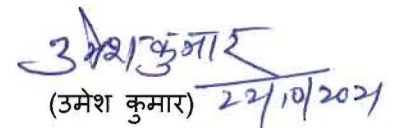 उमेश कुमार
(उमेश कुमार) 22/10/2021